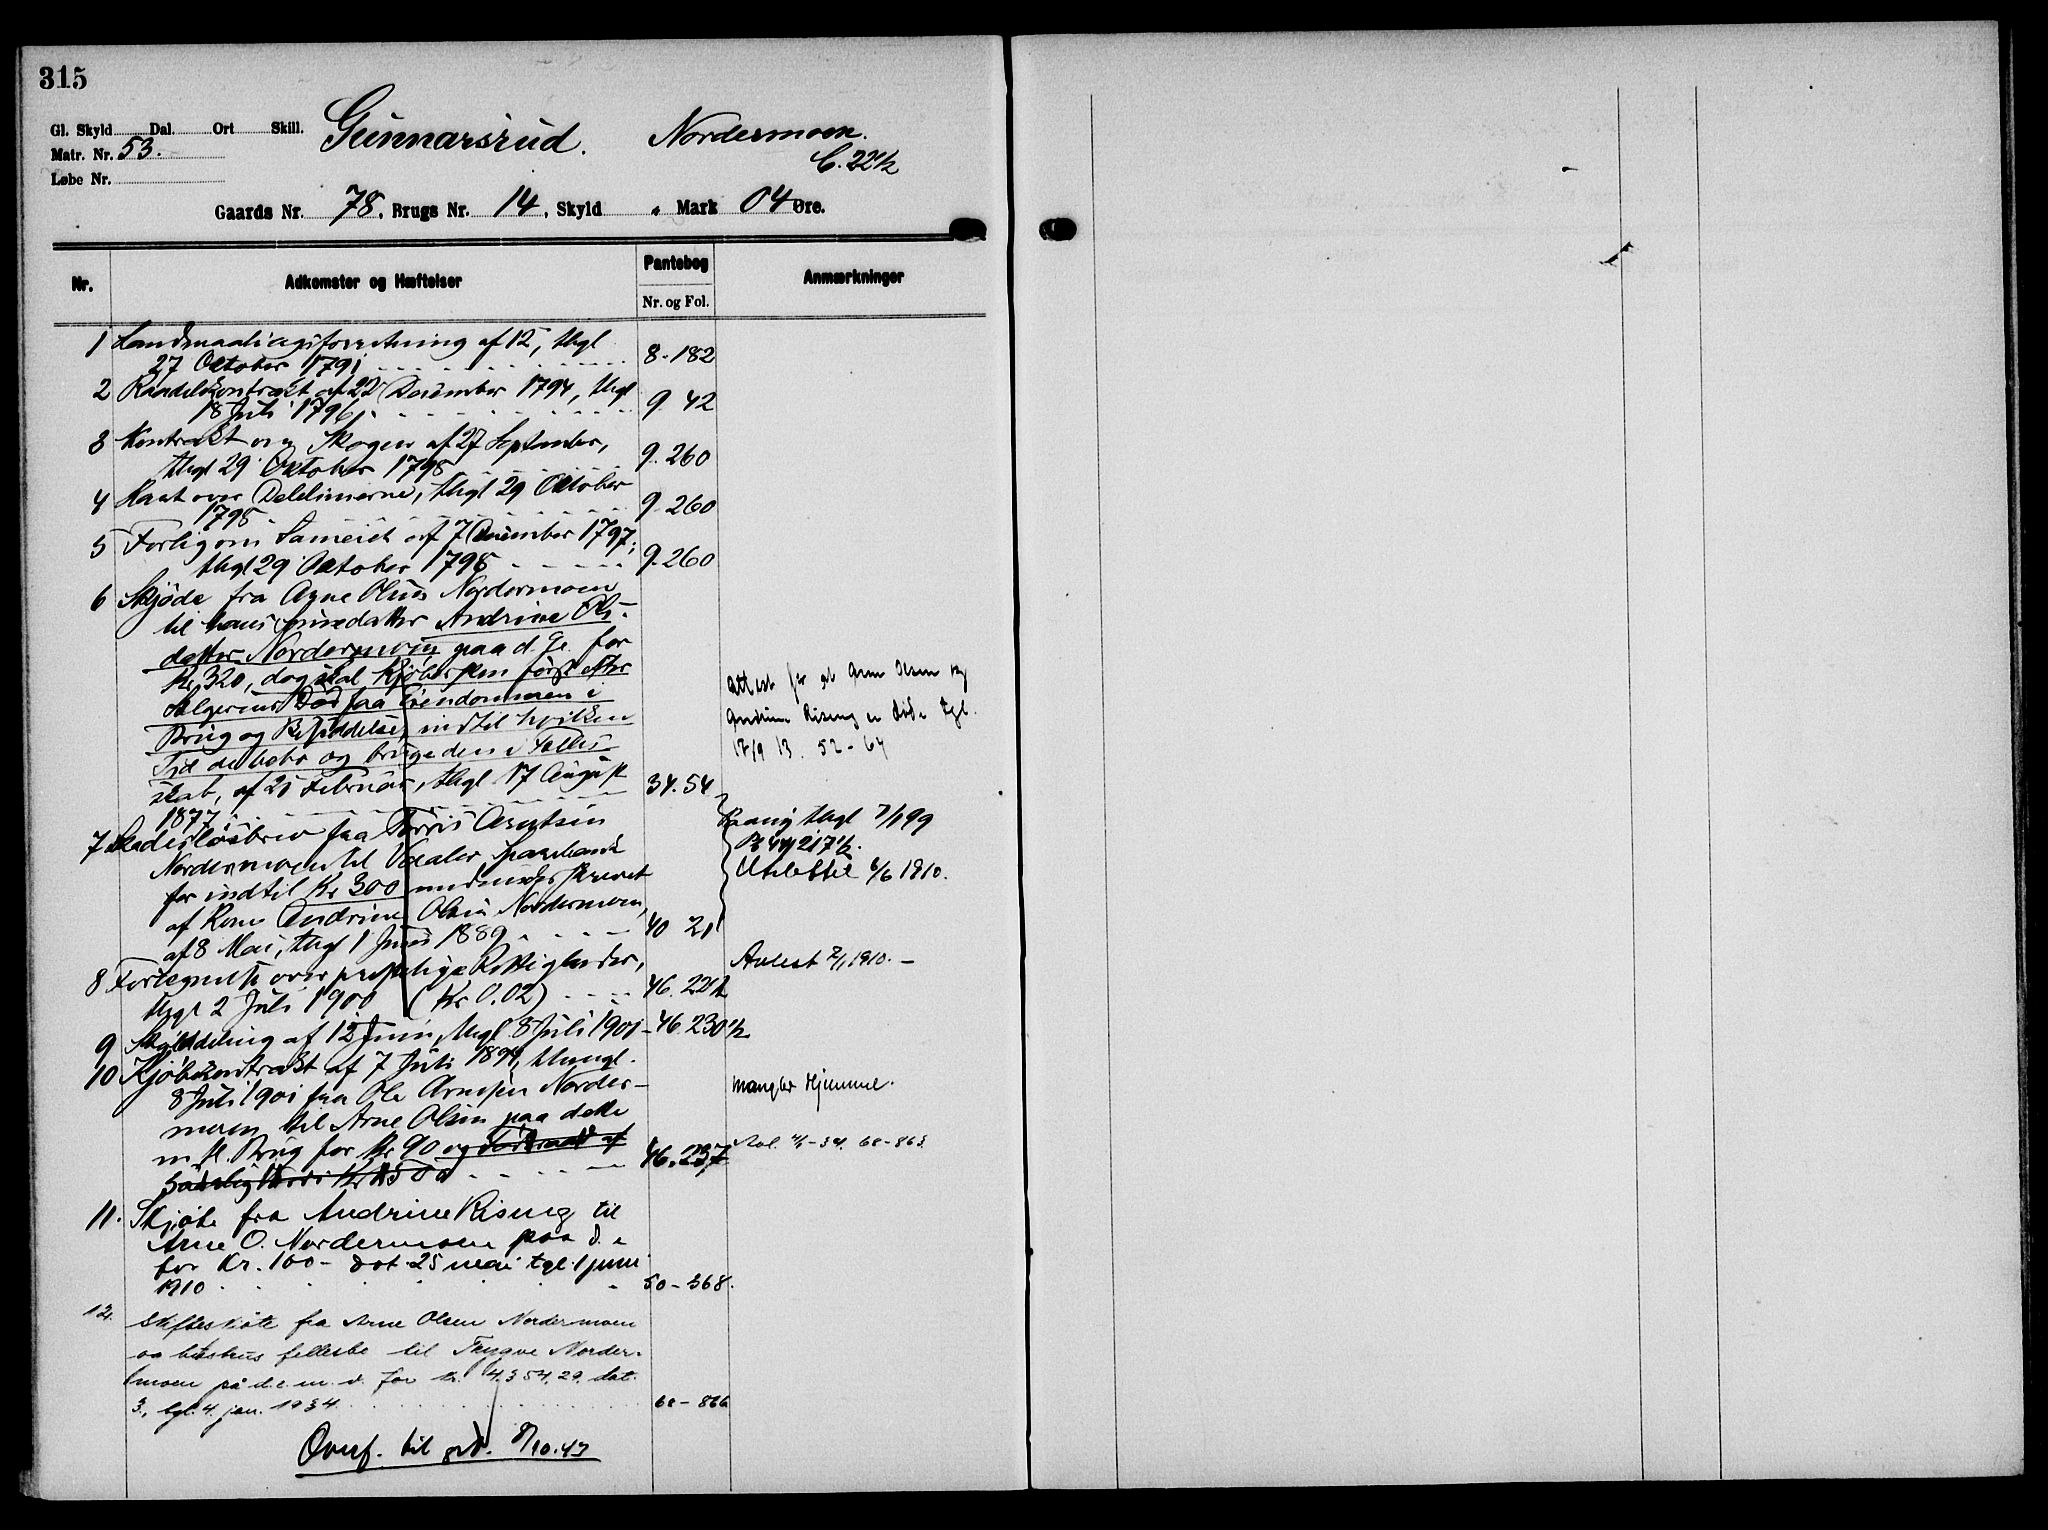 315
Gl. Skyld Dal. Ort Skill.
Matr. Nr. 53.
Løbe Nr.
Gunnarsrud. Nordermoen.
C. 22 1/2
Gaards Nr. 78, Brugs Nr. 14, Skyld " Mark 04 Øre.
Nr. Adkomster og Hæftelser Pantebog Anmærkninger
Nr. og Fol.
1 Landmaalingsforretning af 12, thgl
27 Oktober 1791 8-182
2 Kontrakt af 22 December 1794, thgl
18 Juli 1796 9. 42
3 Kontrakt om Skogen af 27 September,
thgl 29 Oktober 1798 9. 260
4 Kart over Delelinierne, thgl 29 Oktober
1798 9. 260
5 Forlig om Sameiet af 7 December 1797,
thgl 29 Oktober 1798 9. 260
6 Skjøde fra Arne Olsen Nordermoen
til hans Andrine Ols-
datter Nordermoen paa d. Ge. for
Kr. 320, dog skal Kjøbersken først efter
Sælgerens Død faa Eiendommen i
Brug og Besiddelse, indtil hvilken
Tid de bebo og bruge den i Fælles-
skab, af 21 Februar, thgl 17 August
1877. 34. 54
Attest for at Arne Olsen og
Andrine Riseng er døde tgl.
17/9 13. 52-64
7 Skadesløsbrev fra Arntsen
Nordermoen til Vaaler Sparebank
for indtil Kr 300 underskrevet
af Kone Andrine Olsen Nordermoen,
af 8 Mai, thgl 1 Juni 1889 40 21
thgl 7/1 99
Pb 44, 217 1/2.
Udslettet 6/6 1910.
8 Fortegnelse over Rettigheder,
thgl 2 Juli 1900 (Kr 0.02) 46. 221 1/2
Avlest 2/1 1910. -
9 Skylddeling af 12 Juni, thgl 8 Juli 1901 - 46. 230 1/2
10 Kjøbekontrakt af 7 Juli 1894, thingl.
8 Juli 1901 fra Ole Arnesen Norder-
moen til Arne Olsen paa dette
m. fl. Brug for Kr. 90 og Forbrand af 46. 237
mangler Hjemmel.
Avl. 4/1-34. 60-863
11. Skjøte fra Andrine Riseng til
Arne O. Nordermoen paa d. e
for Kr. 100 - dat 25 mai tgl. 1 juni
1910 50-368.
12. Skifteskøte fra Arne Olsen Nordermoen
og hustrus fellesbo til Trygve Norder-
moen på d. e. m. v. for kr. 4354,29, dat.
3., tgl. 4. jan. 1934 60-866
Overf. til 8/10.43